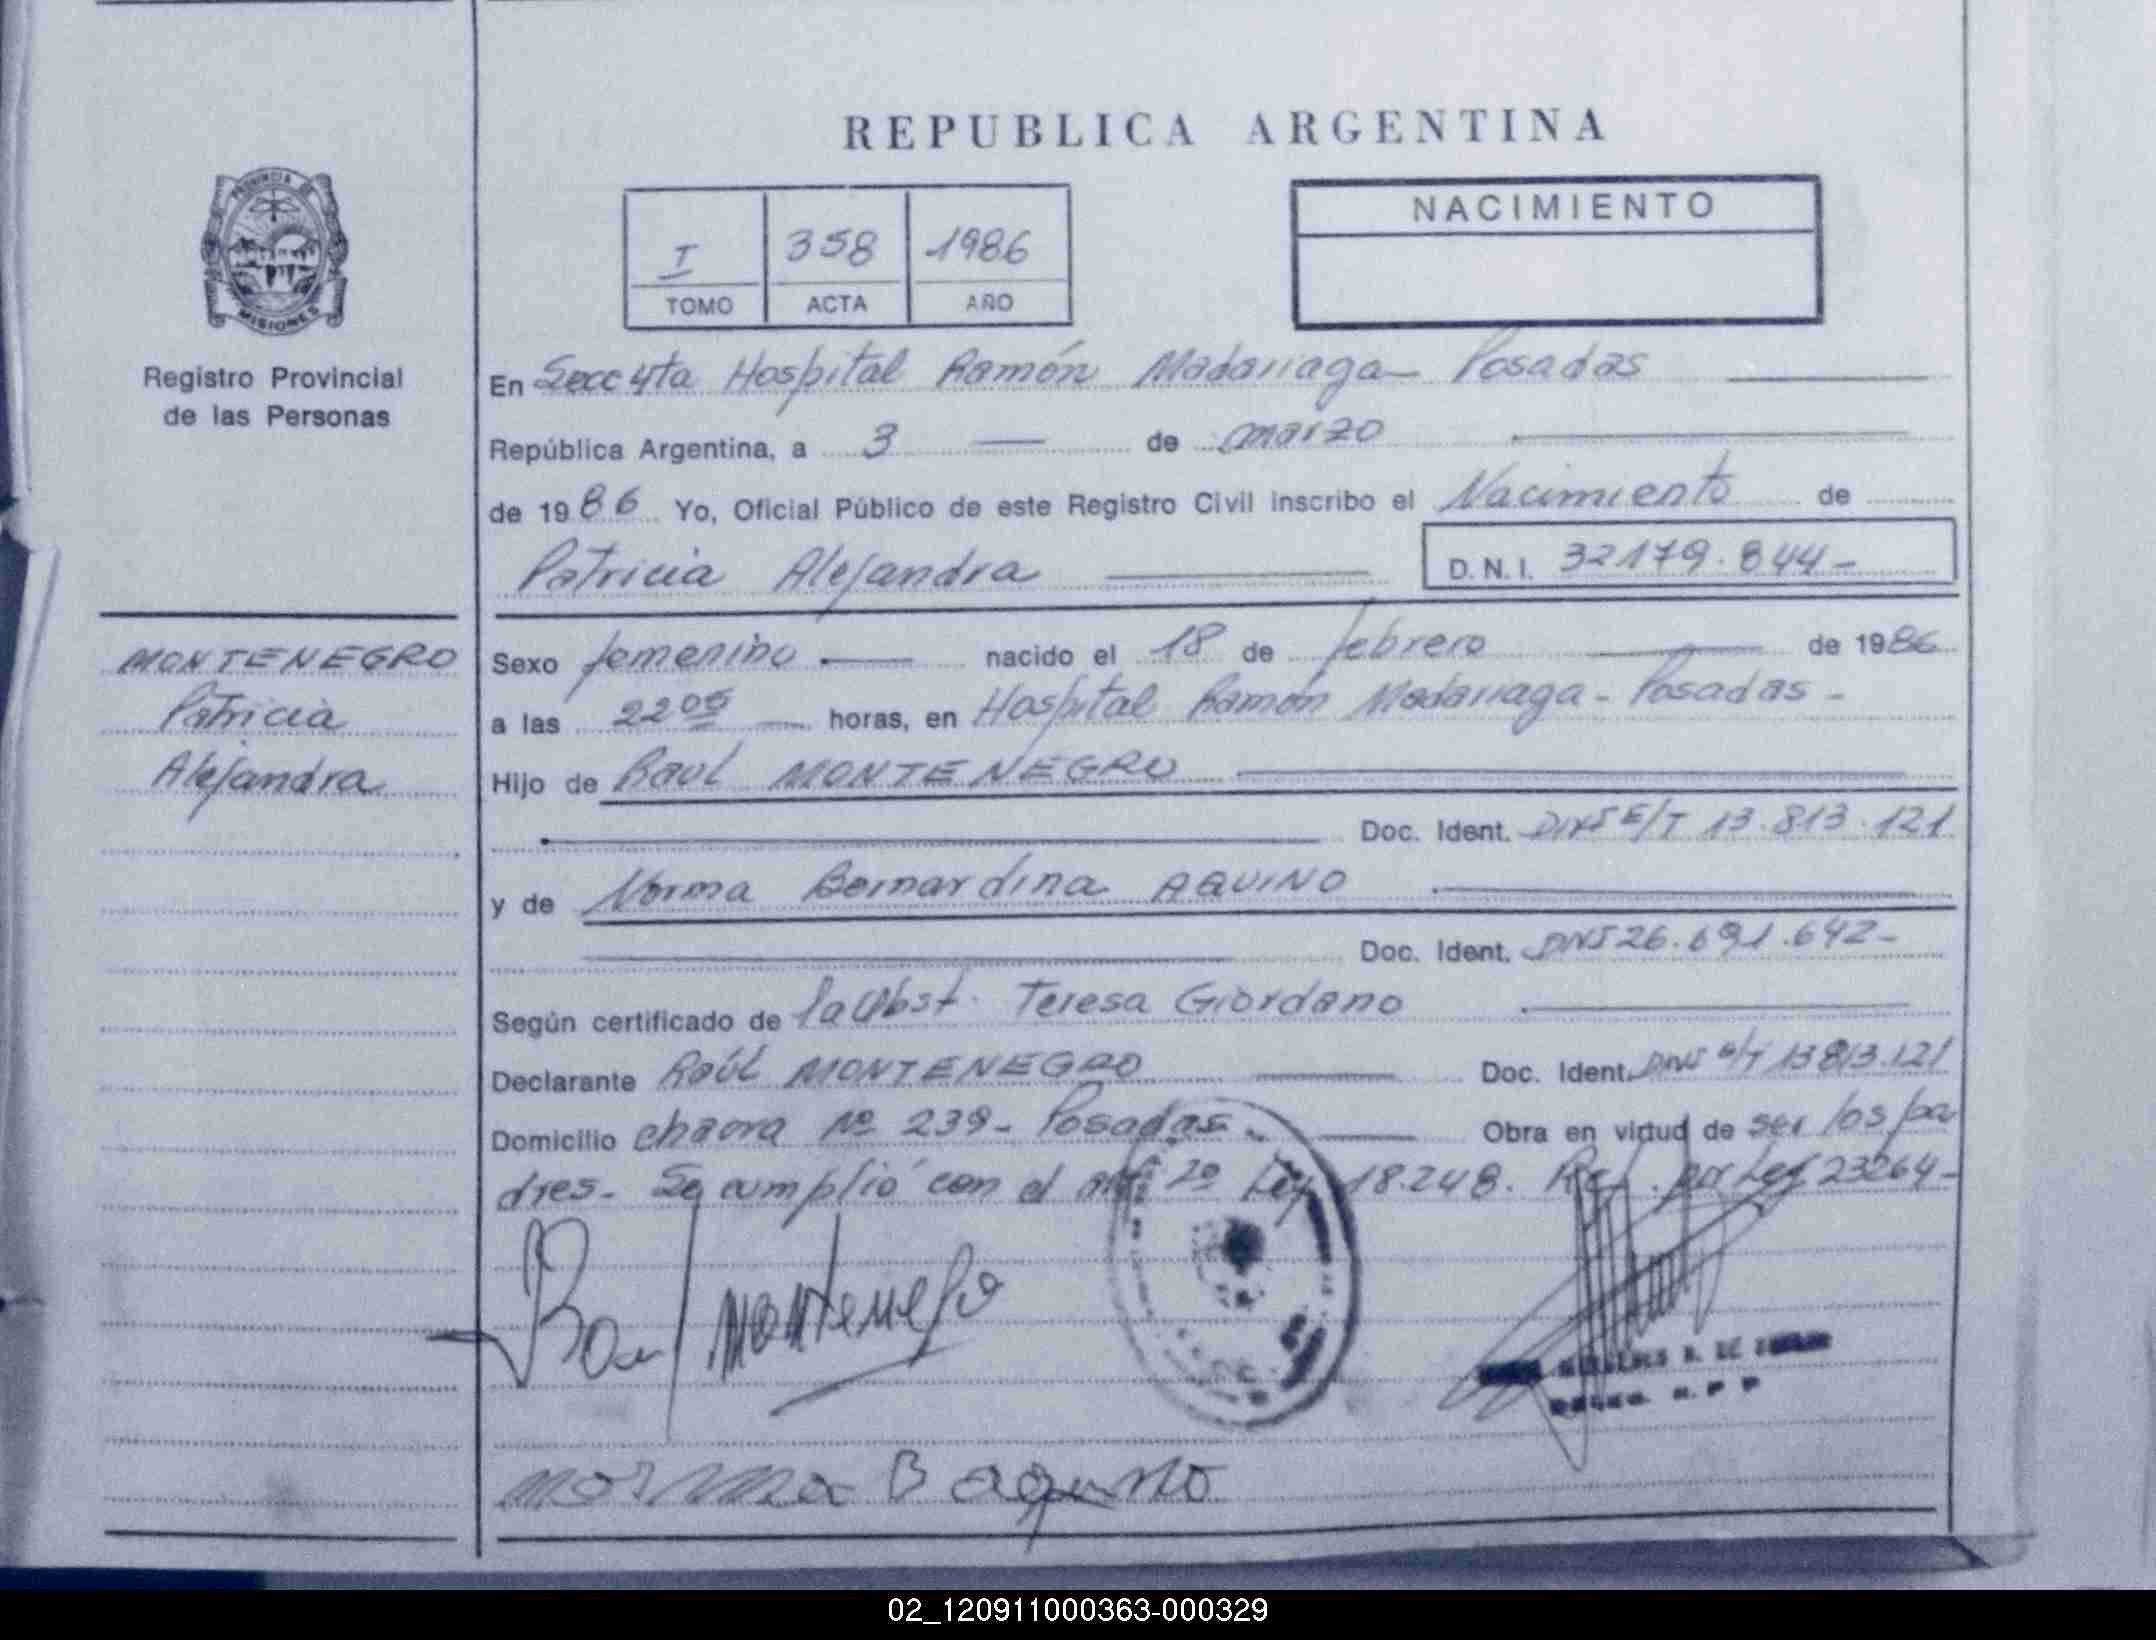 REPUBLICA ARGENTINA
PROVINCIA DE
MISIONES
Registro Provincial
de las Personas
I 358 1986
TOMO ACTA AÑO
NACIMIENTO
En Secc 4ta Hospital Ramón Madariaga - Posadas
República Argentina, a 3 de marzo
de 1986 Yo, Oficial Público de este Registro Civil inscribo el Nacimiento de
Patricia Alejandra
D.N.I. 32179.844-
MONTENEGRO
Patricia
Alejandra
Sexo femenino nacido el 18 de febrero de 1986
a las 22 05 horas, en Hospital Ramón Madariaga - Posadas -
Hijo de Raul MONTENEGRO
Doc. Ident. DNI E/T 13.813.121
y de Norma Bernardina AQUINO
Doc. Ident. DNI 26.691.642-
Según certificado de la Obst. Teresa Giordano
Declarante Raúl MONTENEGRO Doc. Ident. DNI E/T 13813.121
Domicilio chacra Nº 239- Posadas. Obra en virtud de ser los pa
dres- Se cumplió con el art 2º Ley 18.248. Ref. por Ley 23264-
Raul Montenegro
norma B aquino
02_120911000363-000329